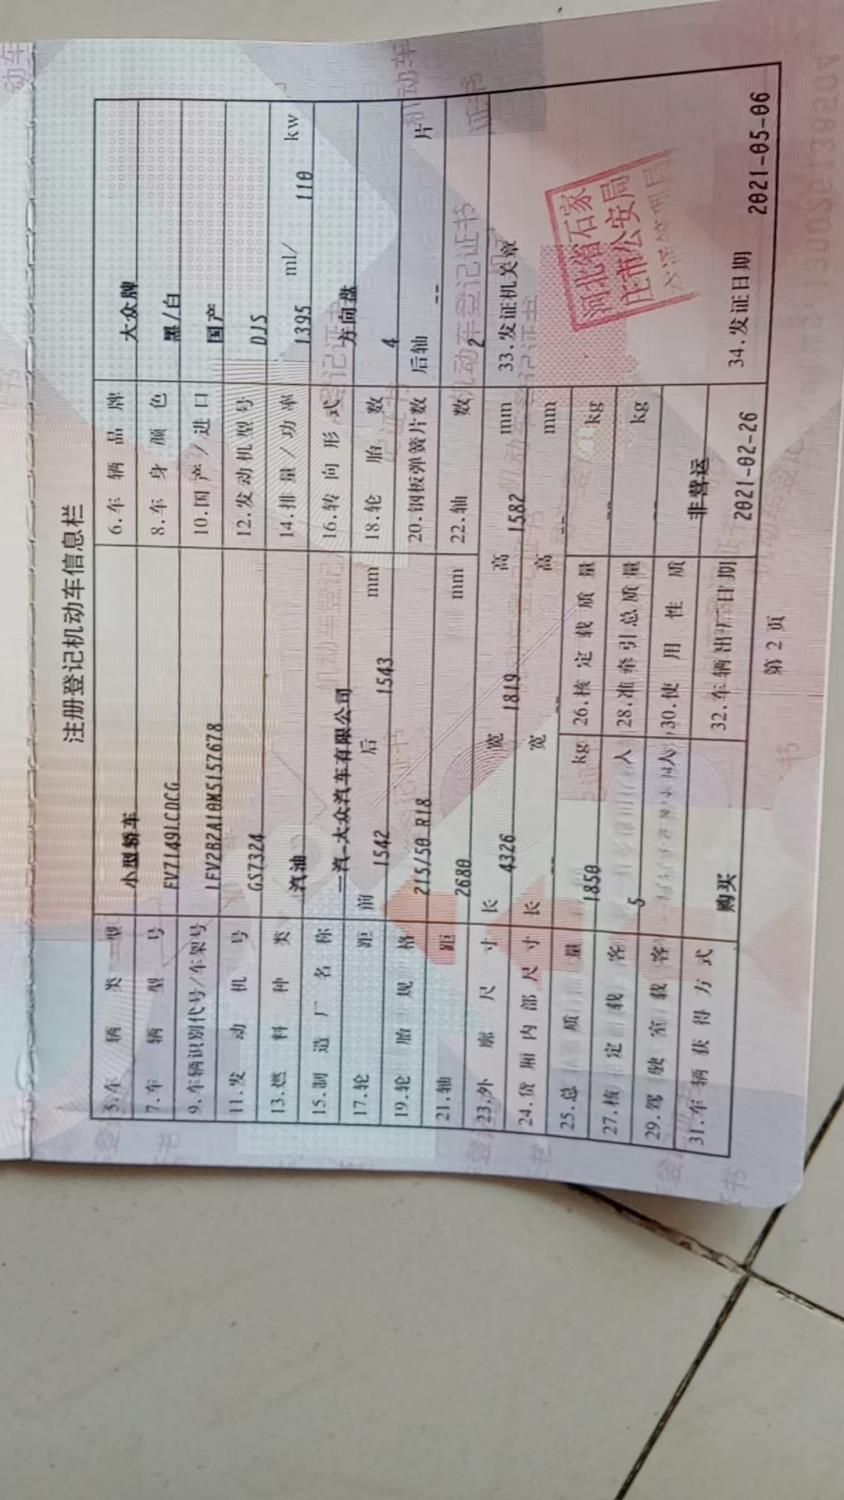 注册登记机动车信息栏
5.车辆类型 小型轿车 6.车辆品牌 大众牌
7.车辆型号 FV7149LCDCG 8.车身颜色 黑/白
9.车辆识别代号/车架号 LFV2B2A10M5157678 10.国产/进口 国产
11.发动机号 GS7324 12.发动机型号 DJS
13.燃料种类 汽油 14.排量/功率 1395 ml/ 110 kw
15.制造厂名称 一汽-大众汽车有限公司 16.转向形式 方向盘
17.轮距 前 1542 后 1543 mm 18.轮胎数 4
19.轮胎规格 215/50 R18 20.钢板弹簧片数 后轴 -- 片
21.轴距 2680 mm 22.轴数 2
23.外廓尺寸 长 4326 宽 1819 高 1582 mm 33.发证机关章
24.货厢内部尺寸 长 -- 宽 -- 高 -- mm
25.总质量 1850 kg 26.核定载质量 -- kg
27.核定载客 5 人 28.准牵引总质量 -- kg
29.驾驶室载客 人 30.使用性质 非营运
31.车辆获得方式 购买 32.车辆出厂日期 2021-02-26 34.发证日期 2021-05-06
河北省石家
庄市公安局
第2页